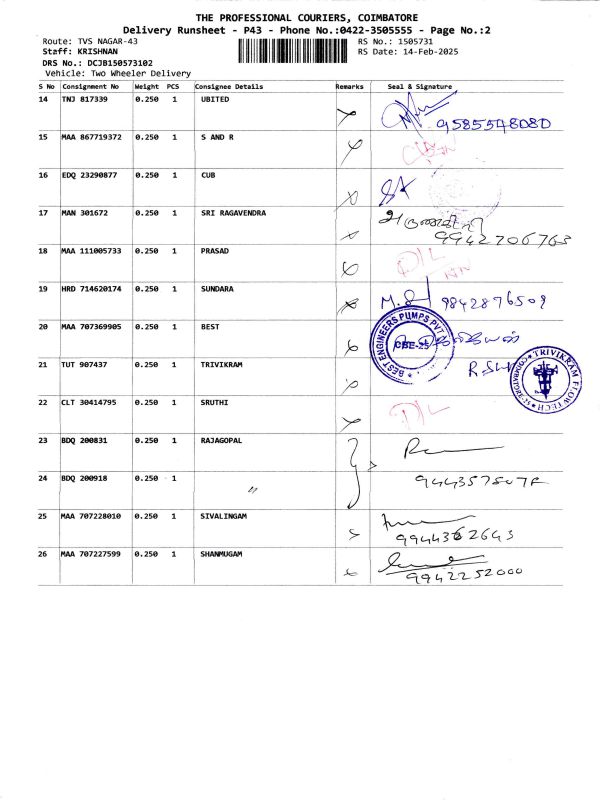 THE PROFESSIONAL COURIERS, COIMBATORE
Delivery Runsheet - P43 - Phone No.:0422-3505555 - Page No.:2
Route: TVS NAGAR-43 RS No.: 1505731
Staff: KRISHNAN RS Date: 14-Feb-2025
DRS No.: DCJB150573102
Vehicle: Two Wheeler Delivery
S No Consignment No Weight PCS Consignee Details Remarks Seal & Signature
14 TNJ 817339 0.250 1 UBITED
9585548080
15 MAA 867719372 0.250 1 S AND R
16 EDQ 23290877 0.250 1 CUB
17 MAN 301672 0.250 1 SRI RAGAVENDRA
9942706763
18 MAA 111005733 0.250 1 PRASAD
D/L
19 HRD 714620174 0.250 1 SUNDARA
9842876509
20 MAA 707369905 0.250 1 BEST
BEST ENGINEERS PUMPS PVT
CBE-25
21 TUT 907437 0.250 1 TRIVIKRAM
TRIVIKRAM FLOWTECH
22 CLT 30414795 0.250 1 SRUTHI
D/L
23 BDQ 200831 0.250 1 RAJAGOPAL
24 BDQ 200918 0.250 1 〃
25 MAA 707228010 0.250 1 SIVALINGAM
9944362643
26 MAA 707227599 0.250 1 SHANMUGAM
9942252000